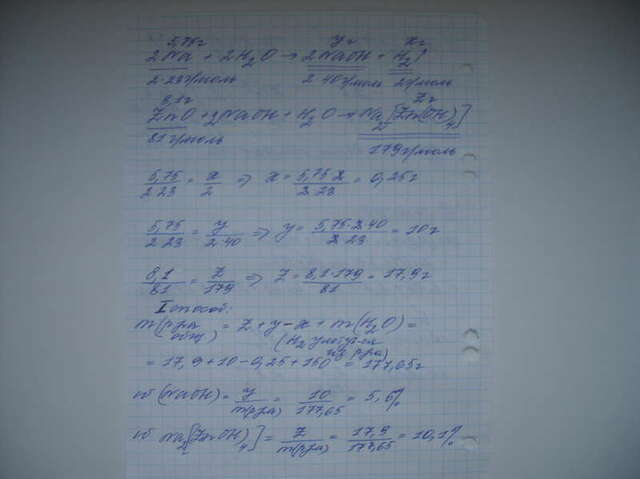 5,75г yг xг
2Na + 2H₂O → 2NaOH + H₂↑
2·23г/моль 2·40г/моль 2г/моль
8,1г zг
ZnO + 2NaOH + H₂O → Na₂[Zn(OH)₄]
81г/моль 179г/моль
5,75/2·23 = x/2 ⇒ x = 5,75·2/2·23 = 0,25г
5,75/2·23 = y/2·40 ⇒ y = 5,75·2·40/2·23 = 10г
8,1/81 = z/179 ⇒ z = 8,1·179/81 = 17,9г
I способ:
m(р-ра общ) = z + y - x + m(H₂O) =
(H₂ улетуч из р-ра)
= 17,9 + 10 - 0,25 + 150 = 177,65г
w(NaOH) = y/m(р-ра) = 10/177,65 = 5,6%
w Na₂[Zn(OH)₄] = z/m(р-ра) = 17,9/177,65 = 10,1%